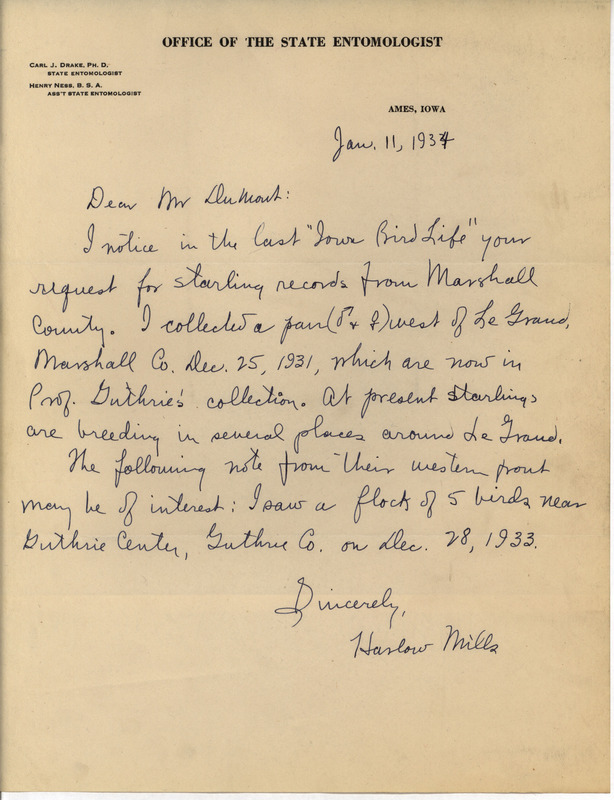 OFFICE OF THE STATE ENTOMOLOGIST
CARL J. DRAKE, PH. D.
STATE ENTOMOLOGIST
HENRY NESS, B. S. A.
ASS'T STATE ENTOMOLOGIST
AMES, IOWA
Jan. 11, 1934
Dear Mr DuMont:
I notice in the last "Iowa Bird Life" your
request for starling records from Marshall
County. I collected a pair (♂ & ♀) west of Le Grand,
Marshall Co. Dec. 25, 1931, which are now in
Prof. Guthrie's collection. At present starlings
are breeding in several places around Le Grand.
The following note from their western front
may be of interest: I saw a flock of 5 birds near
Guthrie Center, Guthrie Co. on Dec. 28, 1933.
Sincerely,
Harlow Mills